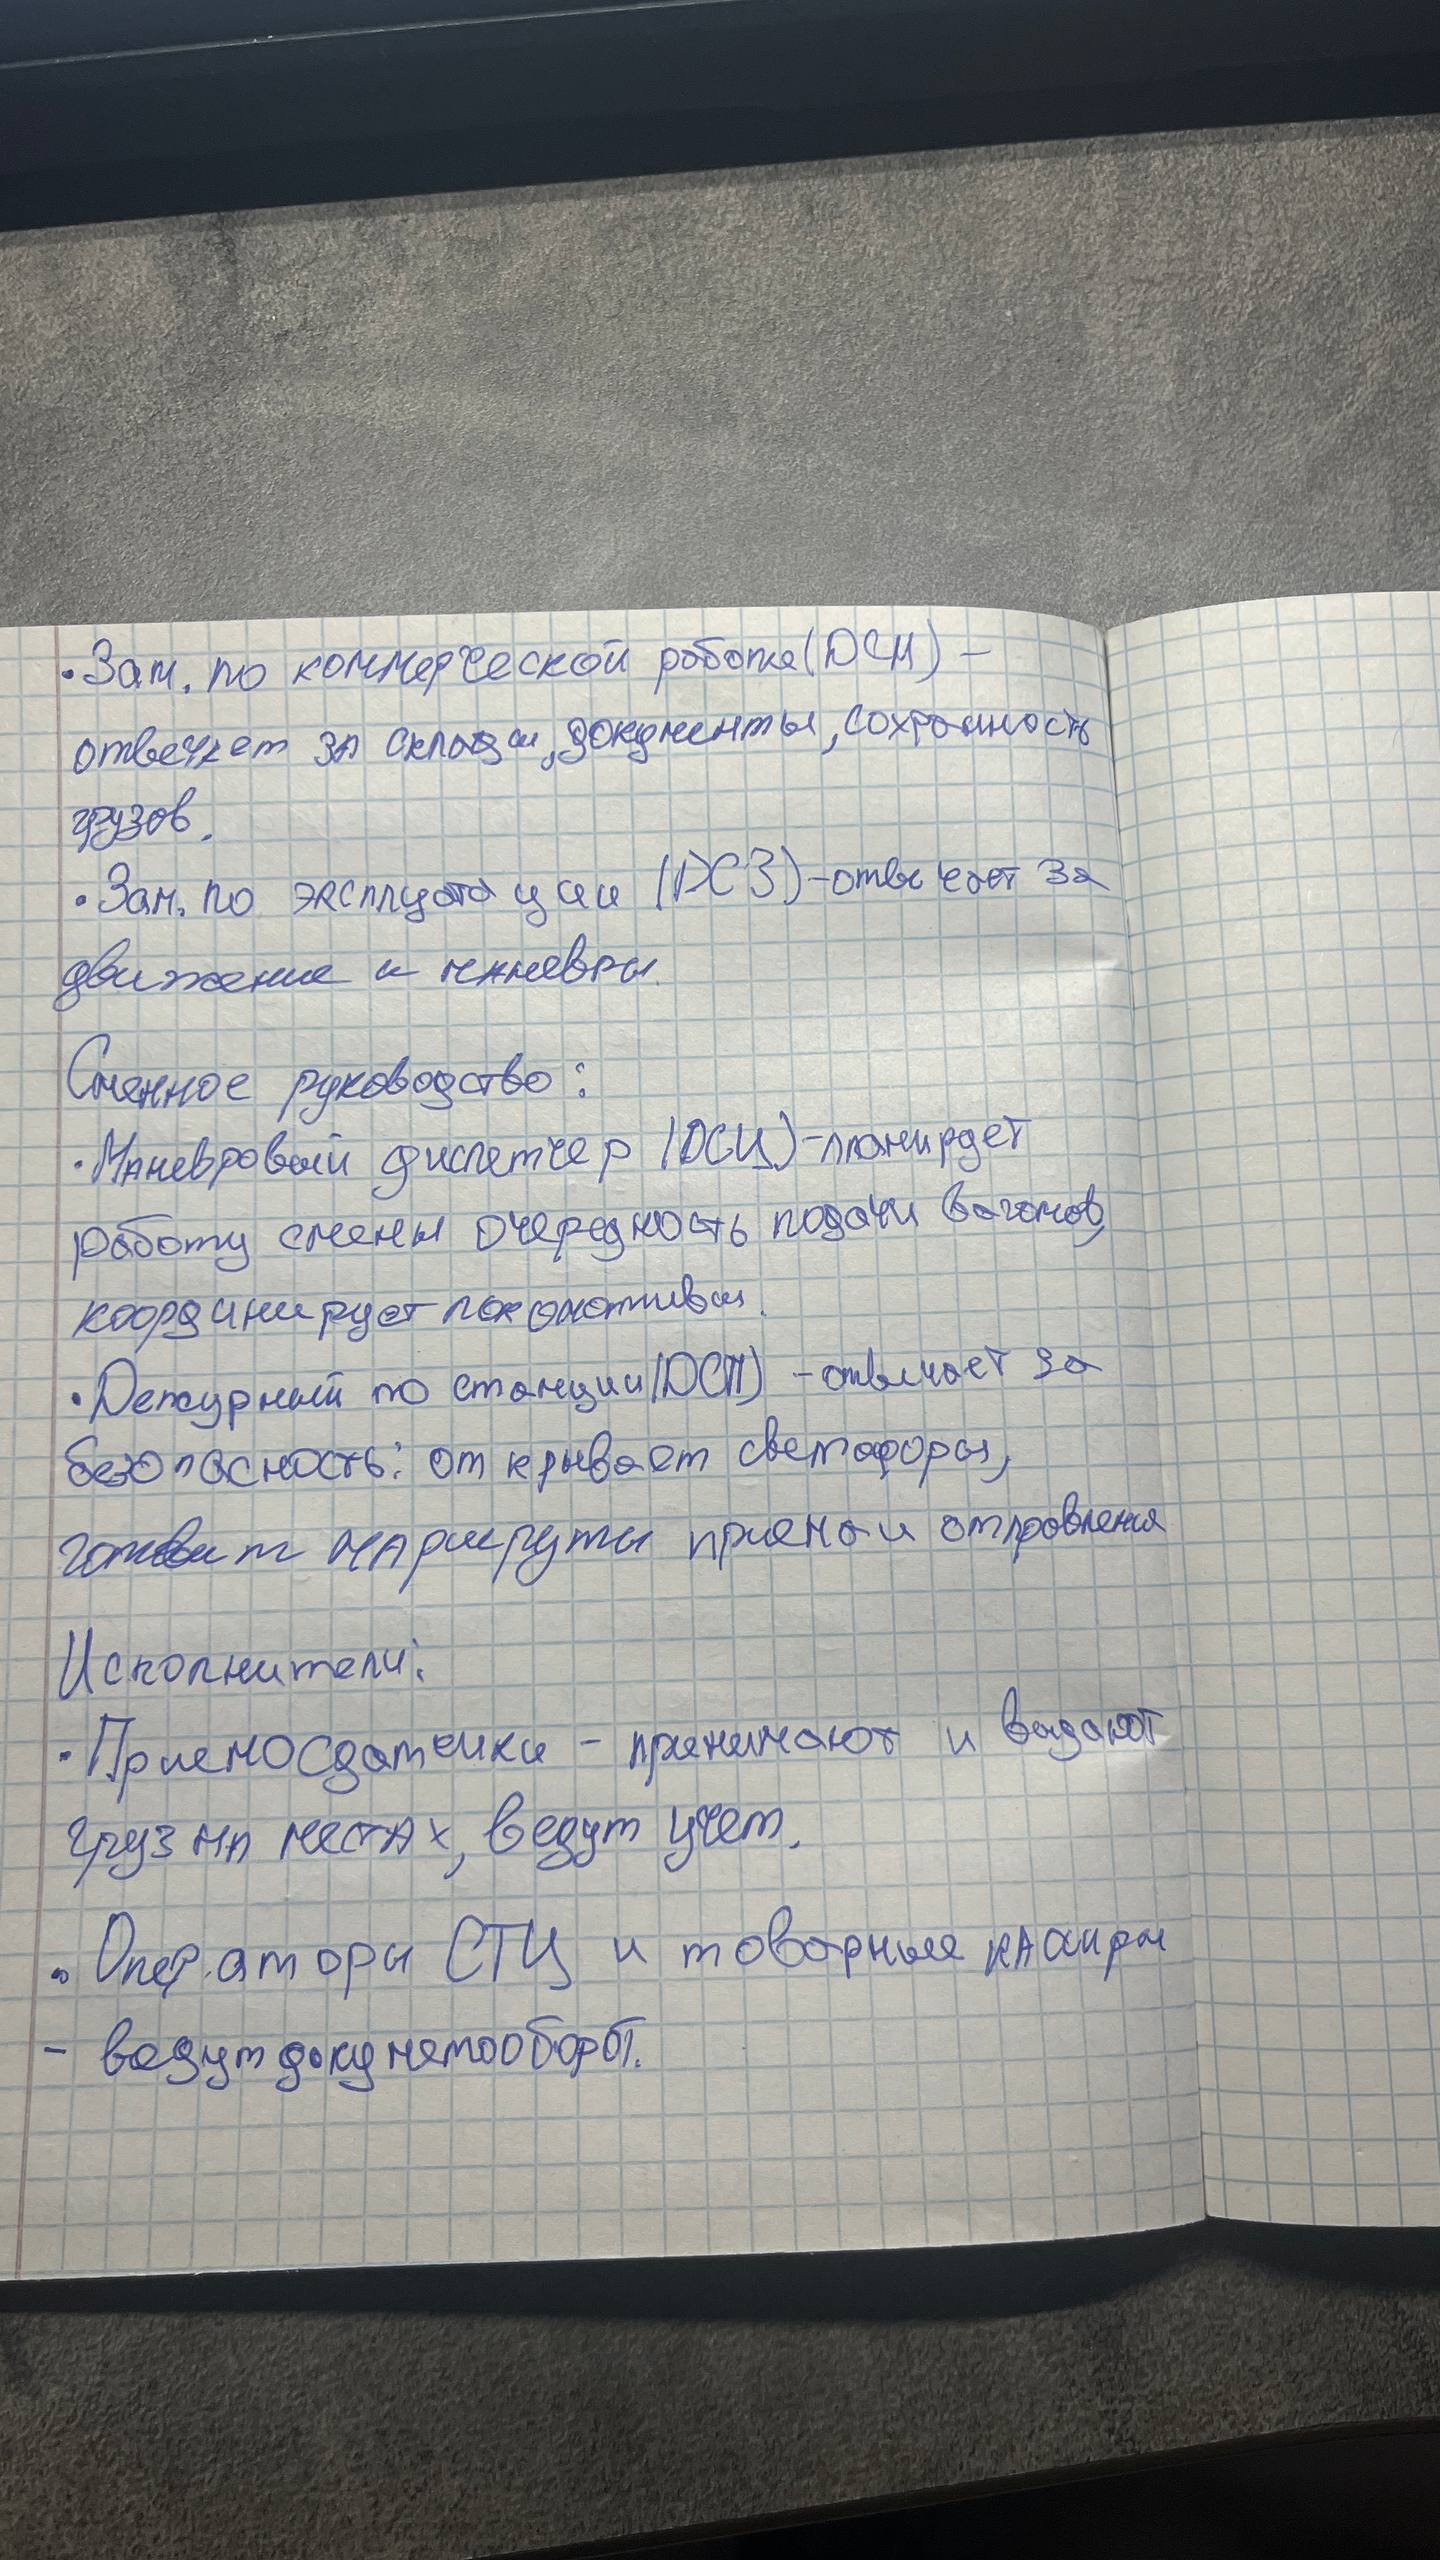 • Зам. по коммерческой работе (ДСМ) –
отвечает за склады, документы, сохранность
грузов.
• Зам. по эксплуатации (ДСЗ) – отвечает за
движение и маневры.
Сменное руководство:
• Маневровый диспетчер (ДСЦ) – планирует
работу смены очередность подачи вагонов,
координирует локомотивы.
• Дежурный по станции (ДСП) – отвечает за
безопасность: открывает светофоры,
готовит маршруты приема и отправления
Исполнители:
• Приемосдатчики – принимают и выдают
груз на местах, ведут учет.
• Операторы СТЦ и товарные кассиры
– ведут докуметооборот.